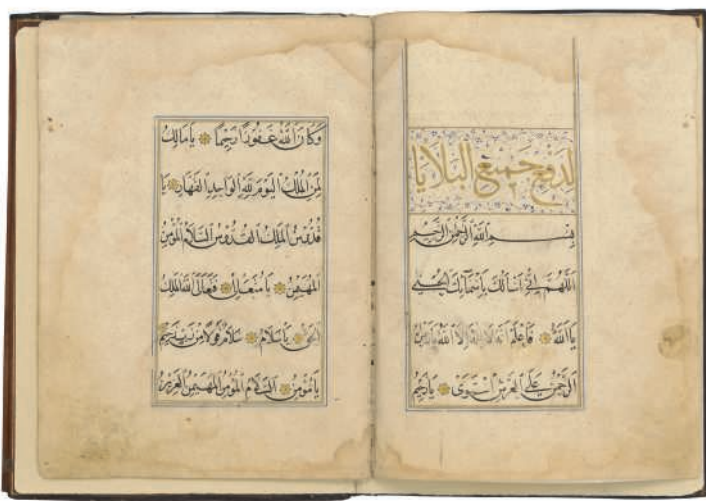 لدفع جميع البلايا
بسم الله الرحمن الرحيم
اللهم اني اسألك باسمائك الحسنى
يا الله فاعلم انه لا اله الا الله يا رحمن
الرحمن على العرش استوى يا رحيم
وكان الله غفورا رحيما يا مالك
لمن الملك اليوم لله الواحد القهار يا
قدوس الملك القدوس السلام المؤمن
المهيمن يا متعال فتعالى الله الملك
الحق يا سلام سلام قولا من رب رحيم
يا مؤمن السلام المؤمن المهيمن العزيز